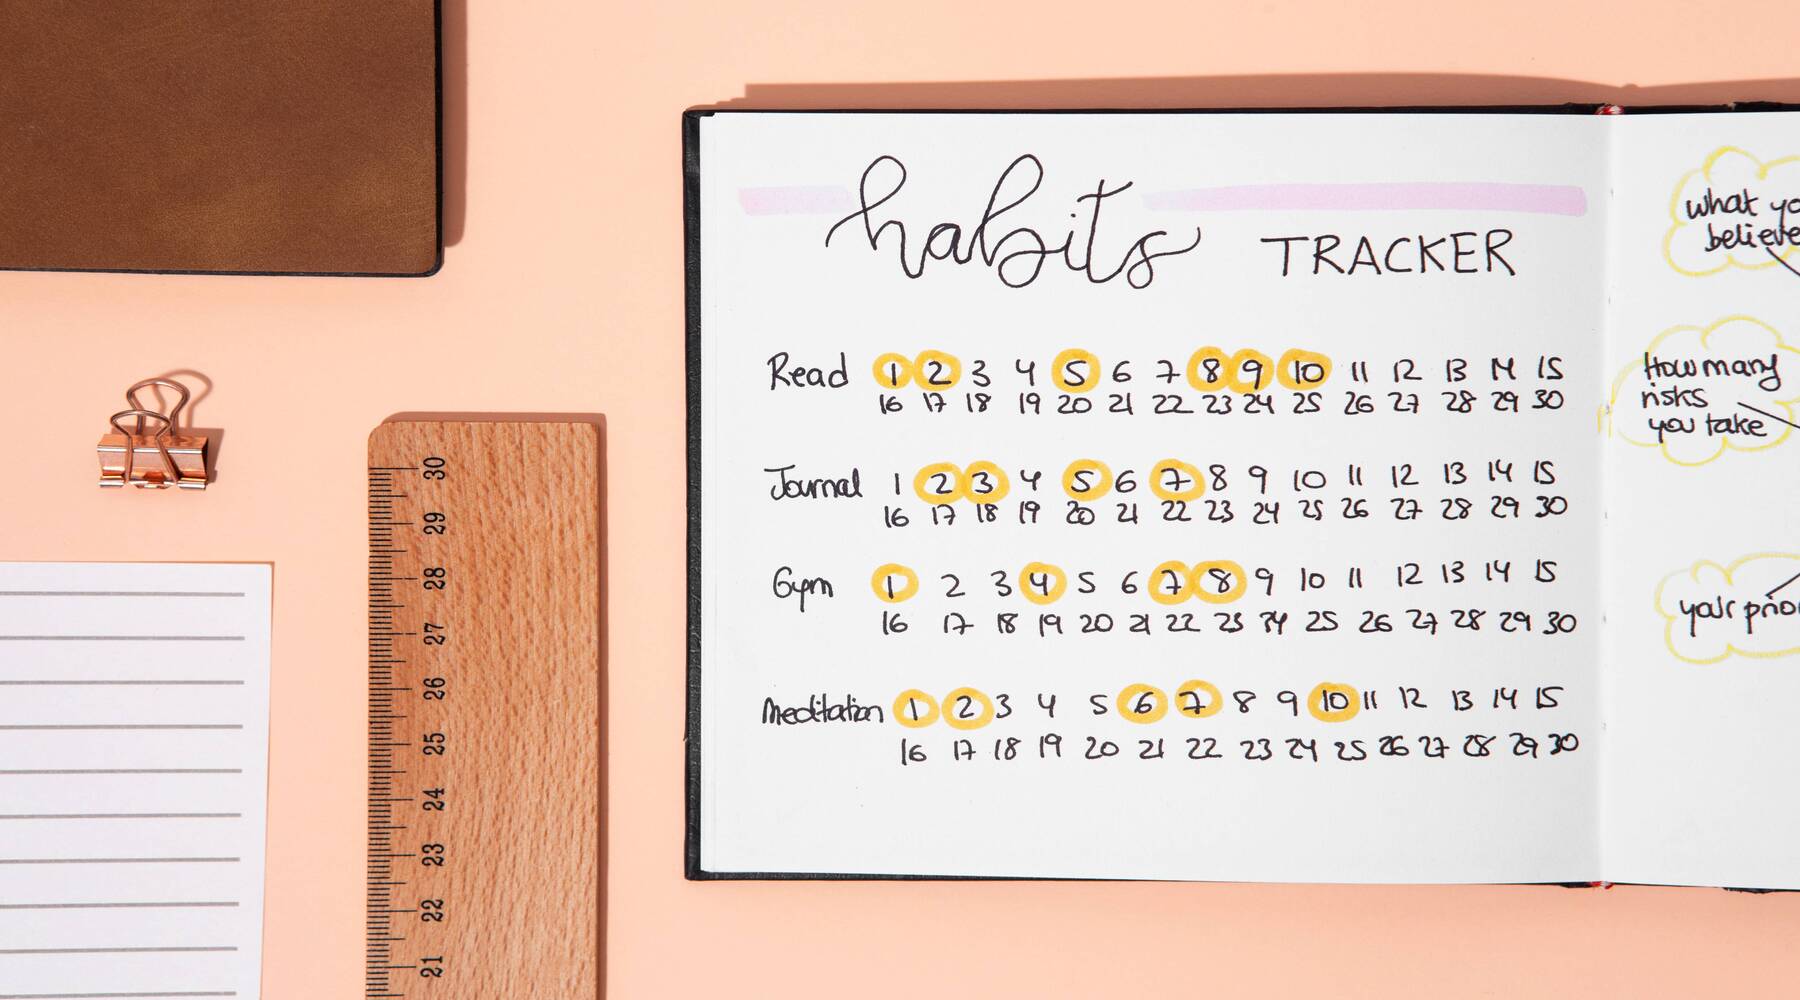 habits TRACKER
Read 1 2 3 4 5 6 7 8 9 10 11 12 13 14 15
16 17 18 19 20 21 22 23 24 25 26 27 28 29 30
Journal 1 2 3 4 5 6 7 8 9 10 11 12 13 14 15
16 17 18 19 20 21 22 23 24 25 26 27 28 29 30
Gym 1 2 3 4 5 6 7 8 9 10 11 12 13 14 15
16 17 18 19 20 21 22 23 24 25 26 27 28 29 30
Meditation 1 2 3 4 5 6 7 8 9 10 11 12 13 14 15
16 17 18 19 20 21 22 23 24 25 26 27 28 29 30
what
believe
How many
risks
you take
your
30
29
28
27
26
25
24
23
22
21